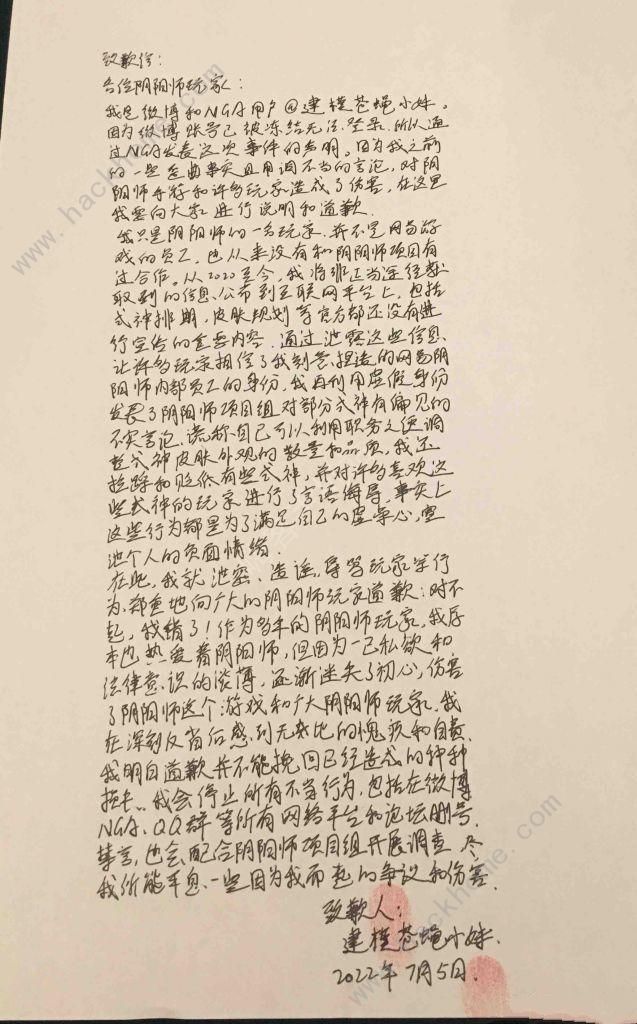 致歉信：
各位阴阳师玩家：
我是微博和NGA用户@建模苍蝇小妹。
因为微博账号已被冻结无法登录，所以通
过NGA发表这次事件的声明。因为我之前
的一些歪曲事实且用词不当的言论，对阴
阳师手游和许多玩家造成了伤害，在这里
我要向大家进行说明和道歉.
我只是阴阳师的一名玩家，并不是网易游
戏的员工，也从来没有和阴阳师项目有
过合作。从2020至今，我将非正当途径获
取到的信息，公布到互联网平台上，包括
式神排期，皮肤规划等官方都还没有进
行宣传的重要内容。通过泄露这些信息，
让许多玩家相信了我刻意捏造的网易阴
阳师内部员工的身份，我再利用虚假身份
发表了阴阳师项目组对部分式神有偏见的
不实言论，谎称自己可以利用职务之便调
整式神皮肤外观的数量和品质，我还
拉踩和贬低有些式神，并对许多喜欢这
些式神的玩家进行了言语侮辱，事实上
这些行为都是为了满足自己的虚荣心，宣
泄个人的负面情绪.
在此，我就泄密、造谣、辱骂玩家等行
为，郑重地向广大的阴阳师玩家道歉：对不
起，我错了！作为多年的阴阳师玩家，我原
本也热爱着阴阳师，但因为一己私欲和
法律意识的淡薄，逐渐迷失了初心，伤害
了阴阳师这个游戏和广大阴阳师玩家，我
在深刻反省后感到无比的愧疚和自责.
我明白道歉并不能挽回已经造成的种种
损失，我会停止所有不当行为，包括在微博
NGA、QQ群等所有网络平台和论坛删号、
禁言，也会配合阴阳师项目组开展调查，尽
我所能平息一些因为我而起的争议和伤害.
致歉人：
建模苍蝇小妹.
2022年7月5日.
www.hackhome.com
www.hackhome.com